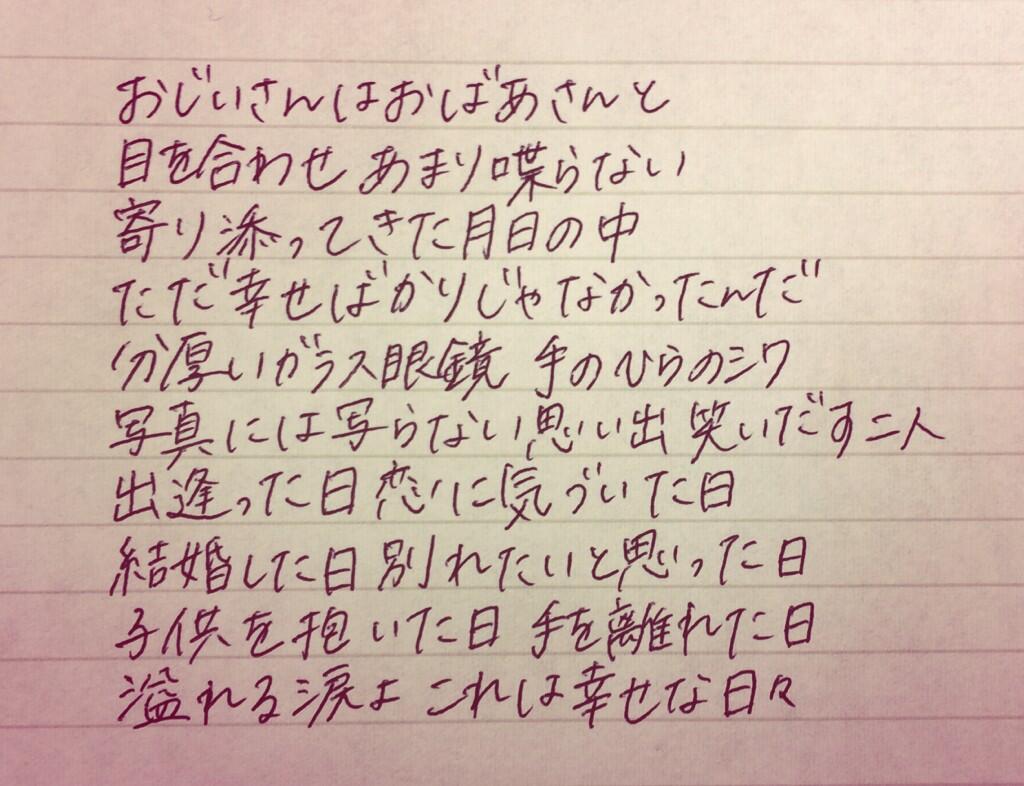 おじいさんはおばあさんと
目を合わせ あまり喋らない
寄り添ってきた月日の中
ただ幸せばかりじゃなかったんだ
分厚いガラス眼鏡 手のひらのシワ
写真には写らない思い出 笑いだす二人
出逢った日 恋に気づいた日
結婚した日 別れたいと思った日
子供を抱いた日 手を離れた日
溢れる涙よ これは幸せな日々